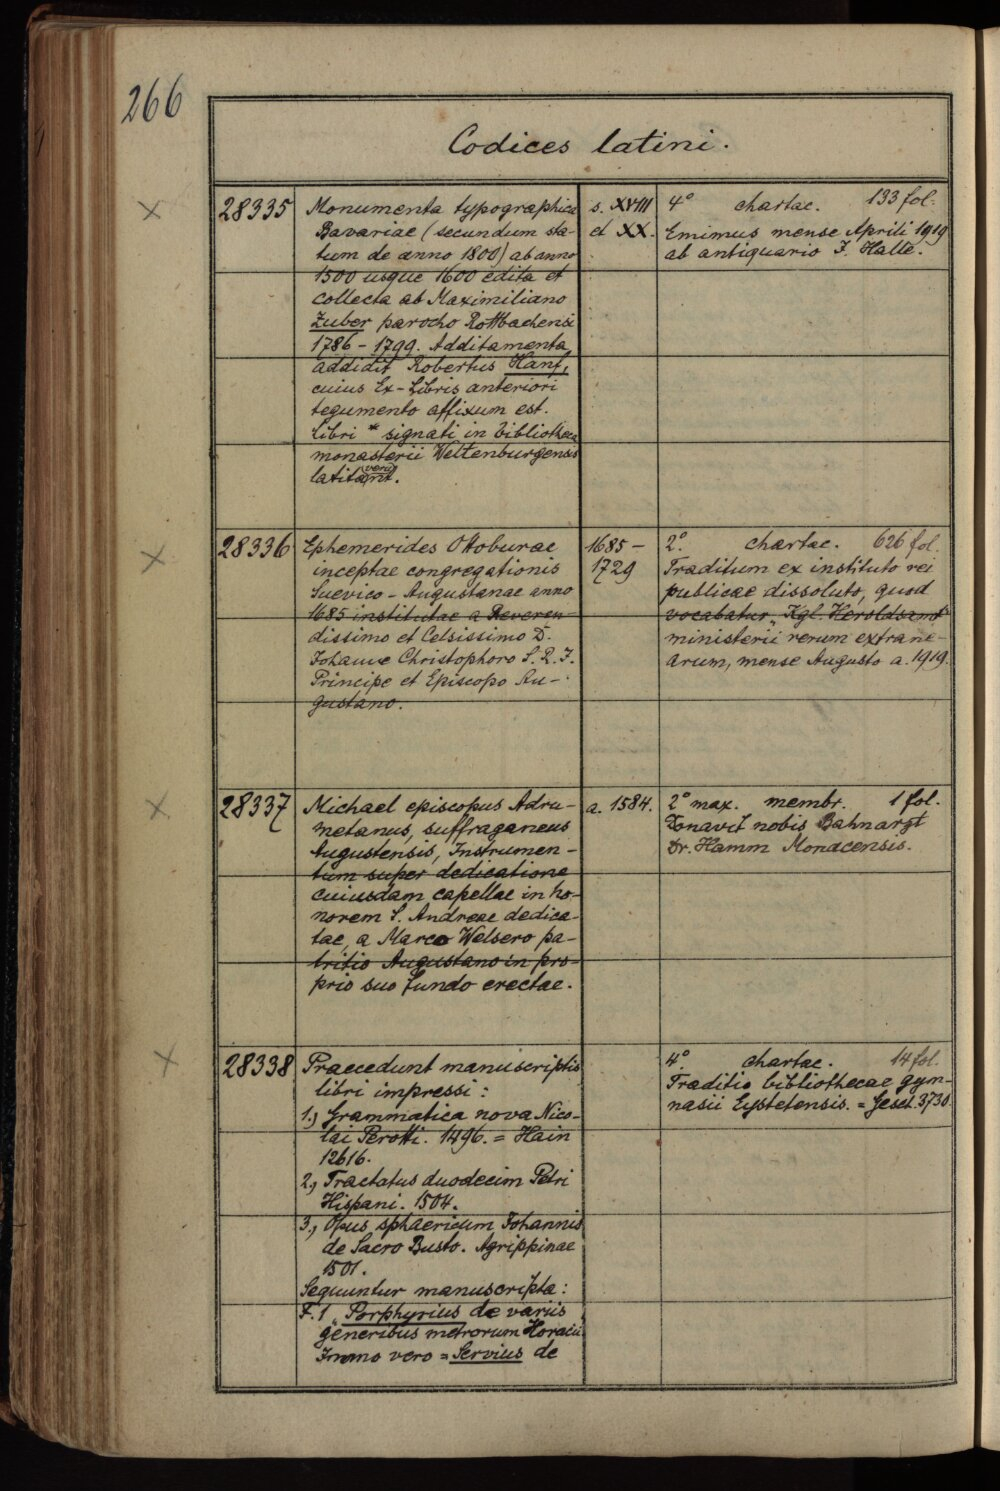 266
Codices latini.
28335
Monumenta typographica
Bavariae (secundum sta-
tum de anno 1800) ab anno
1500 usque 1600 edita et
collecta ab Maximiliano
Zuber parocho Rottbachensi
1786 - 1799. Additamenta
addidit Robertus Hanf,
cuius Ex-Libris anteriori
tegumento affixum est.
Libri * signati in bibliotheca
monasterii Weltenburgensis
latitant.
s. XVIII
et XX.
4° chartac. 133 fol.
Emimus mense Aprili 1919
ab antiquario J. Halle.
28336
Ephemerides Ottoburae
inceptae congregationis
Suevico-Augustanae anno
1685 institutae a Reveren-
dissimo et Celsissimo D.
Johanne Christophoro S. R. J.
Principe et Episcopo Au-
gustano.
1685 -
1729
2°. chartac. 626 fol.
Traditum ex instituto rei
publicae dissoluto, quod
vocabatur „Kgl. Heroldsamt"
ministerii rerum extrane-
arum, mense Augusto a. 1919.
28337
Michael episcopus Adru-
metanus, suffraganeus
Augustensis, Instrumen-
tum super dedicatione
cuiusdam capellae in ho-
norem S. Andreae dedica-
tae, a Marco Welsero pa-
tritio Augustano in pro-
prio suo fundo erectae.
a. 1584.
2° max. membr. 1 fol.
Donavit nobis Bahnarzt
Dr. Hamm Monacensis.
28338
Praecedunt manuscriptis
libri impressi:
1.) Grammatica nova Nico-
lai Perotti. 1496. = Hain
12616.
2.) Tractatus duodecim Petri
Hispani. 1504.
3.) Opus sphaericum Johannis
de Sacro Busto. Agrippinae
1501.
Sequuntur manuscripta:
F. 1 „Porphyrius de variis
generibus metrorum Horacii"
Immo vero = Servius de
4° chartac. 14 fol.
Traditio bibliothecae gym-
nasii Eystetensis. = Gesch. 3730.